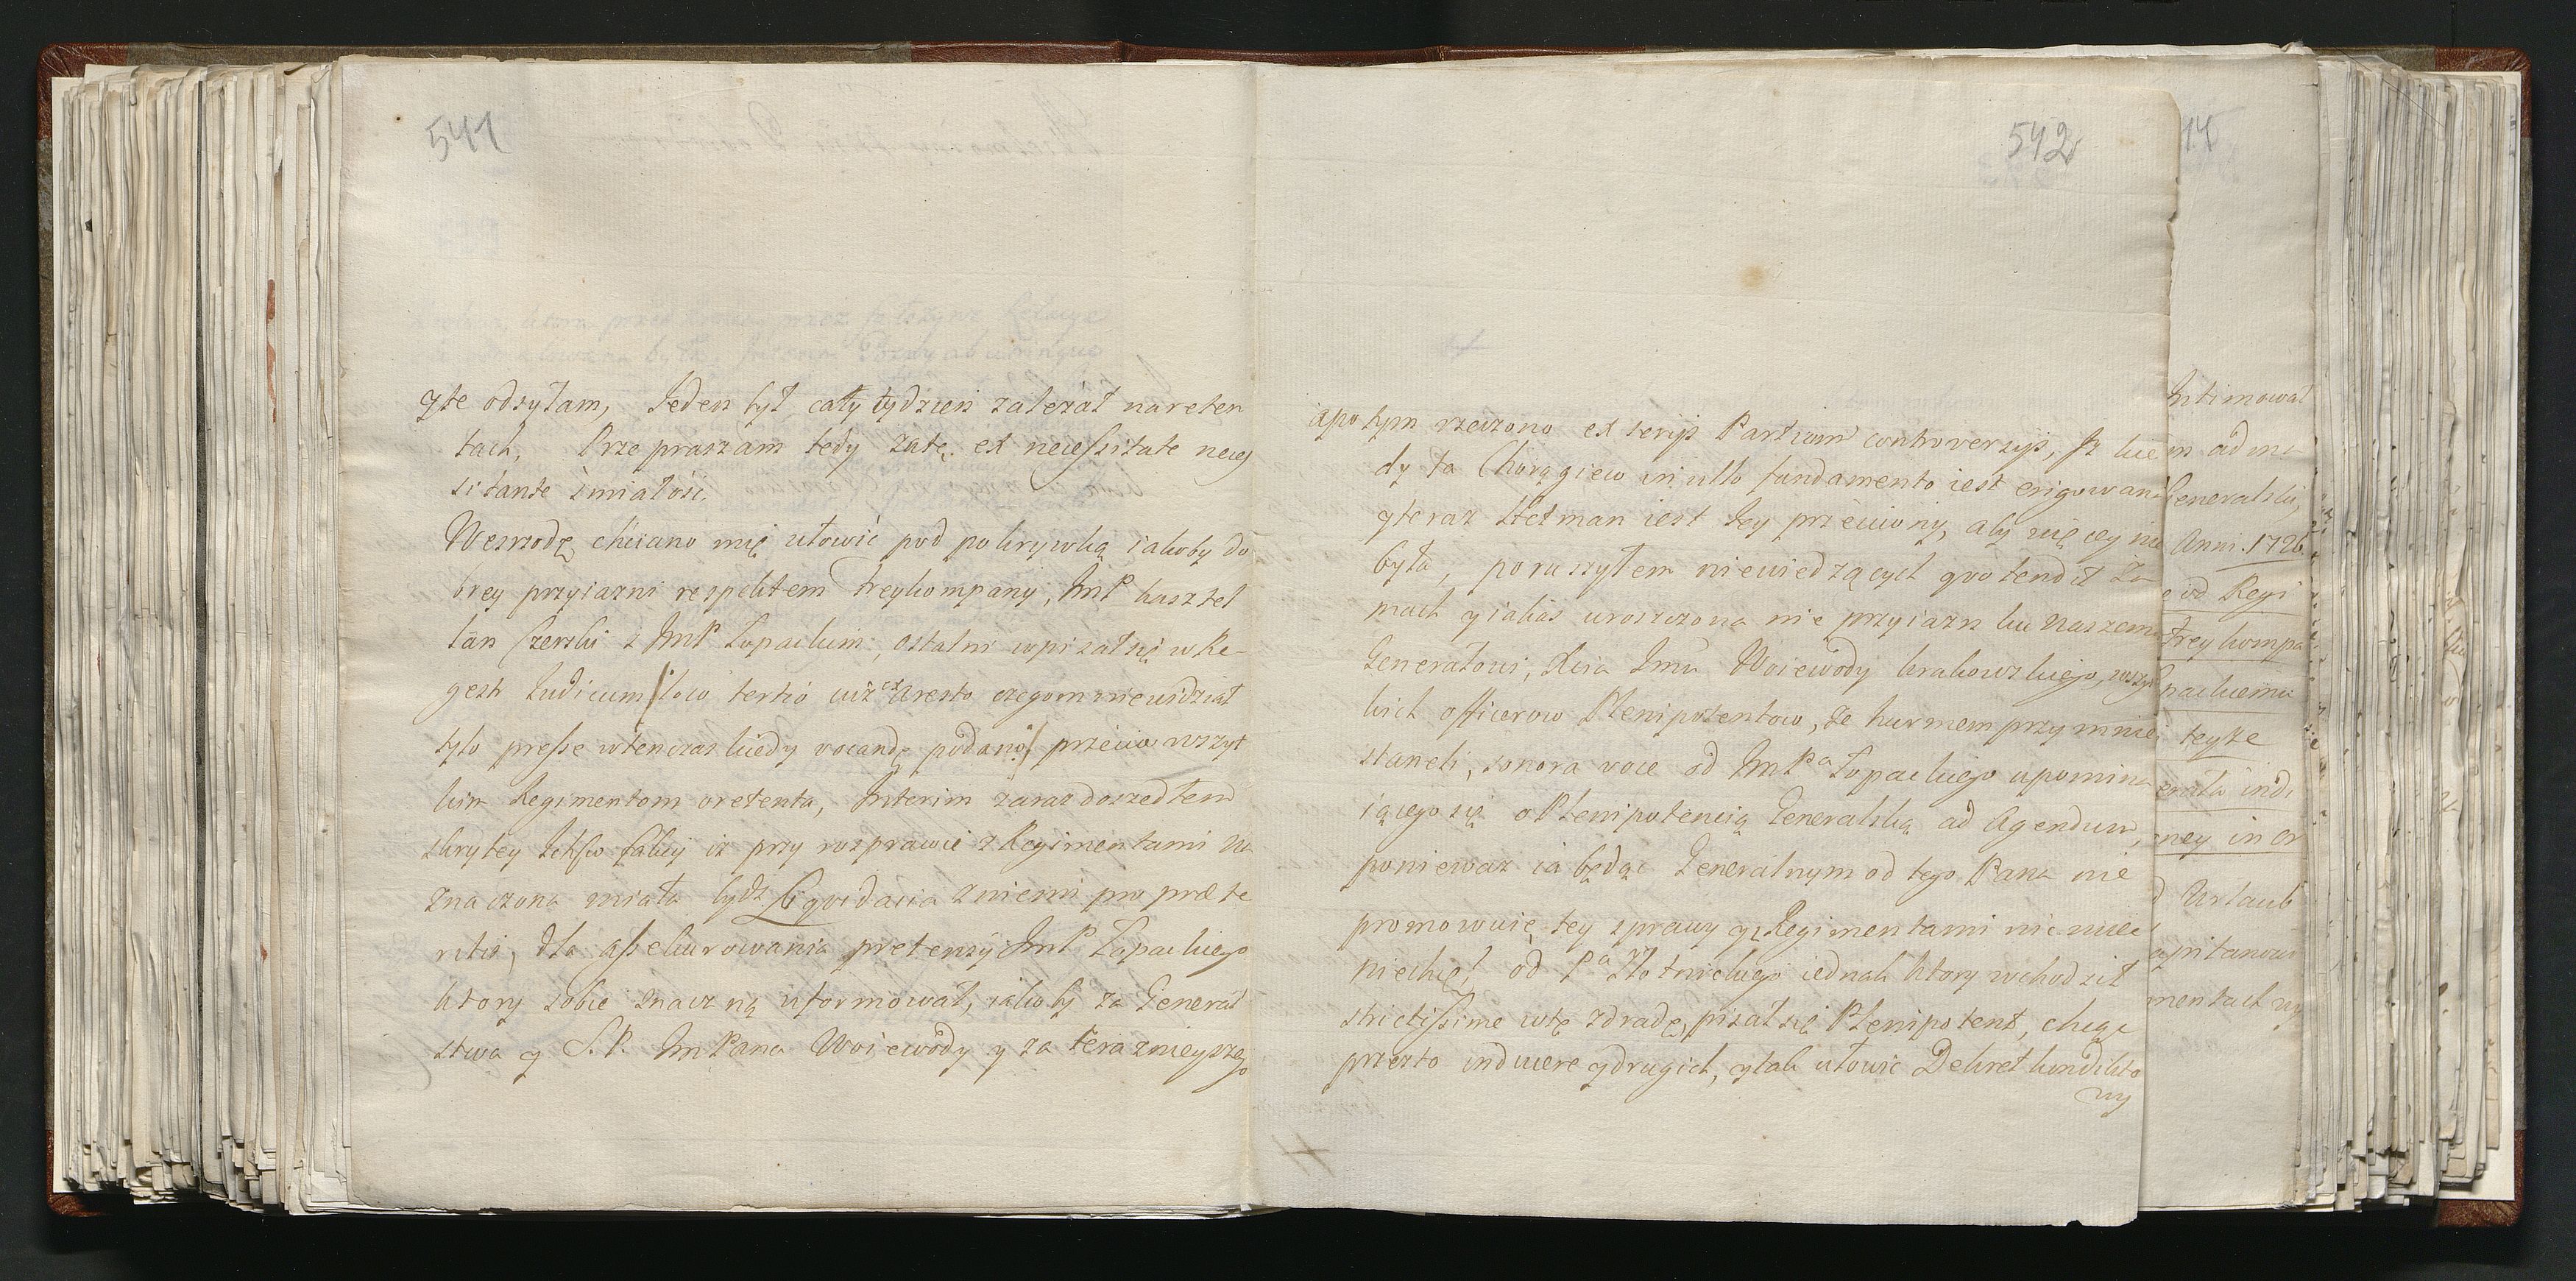 541
yte odsyłam, Jeden był cały tydzien zależał nareten
tach, Prze praszam tedy zatę ex necessitate neces
sitante smiałosi.
Weszrodę chciano mię ułowić pod pokrywką iakoby do
brey przyiazni respektem Freykompany, ImP kasztel
lan Czerski z ImP Łopackim, ostatni wpisał się w Re-
gestr Iudicum loco tertio iuż ex aresto czegom niewidział
tylo presse wtenczas kiedy vocandę podano przeciw wszyt
kim Regimentom o retenta, Interim zaraz doszedłem
skrytey falby iż przy rozprawie z Regimentami na
znaczona miała bydz Liqvidacia zniemi pro præte
ritis, dla assekurowania pretensÿ ImP Łopackiego
ktory sobie znaczną uformował, iakoby za Generał
stwa y S.P. ImPana Woiewody y za teraznieyszego
542
apotym rzeczono ex serijs Partium controversijs, kie
dy ta Chorągiew in ullo fundamento iest erigowana
yteraz Hetman iest Iey przeciwny, aby więcey nie
była, poruszyłem niewiedzących quo tendit Za
mach yiakas uroszczona nie przyiazn ku Naszemu
Generałowi, Xcia Imci Woiewody krakowskiego, wszyt
kich officerow Plenipotentow, że hurmem przy mnie
staneli, sonora voce od ImPa Łopackiego upomina
iącego się o Plenipotencią Generalską ad Agendum,
poniewaz ia będąc Generalnym od tego Pana nie
promowuię tey sprawy y z Regimentami nic miec
niechcę, od Pa Złotnickiego iednak ktory wchodził
strictissime wtę zdradę, pisał się Plenipotent, chcąc
przezto inducere ydrugich, ytak ułowić Dekret kondikto
wy
Intimował
ad
Generalski,
Anni 1726
od Regi
Freykompa
packiemu
teyże
ney in or
Urlaub
mentach